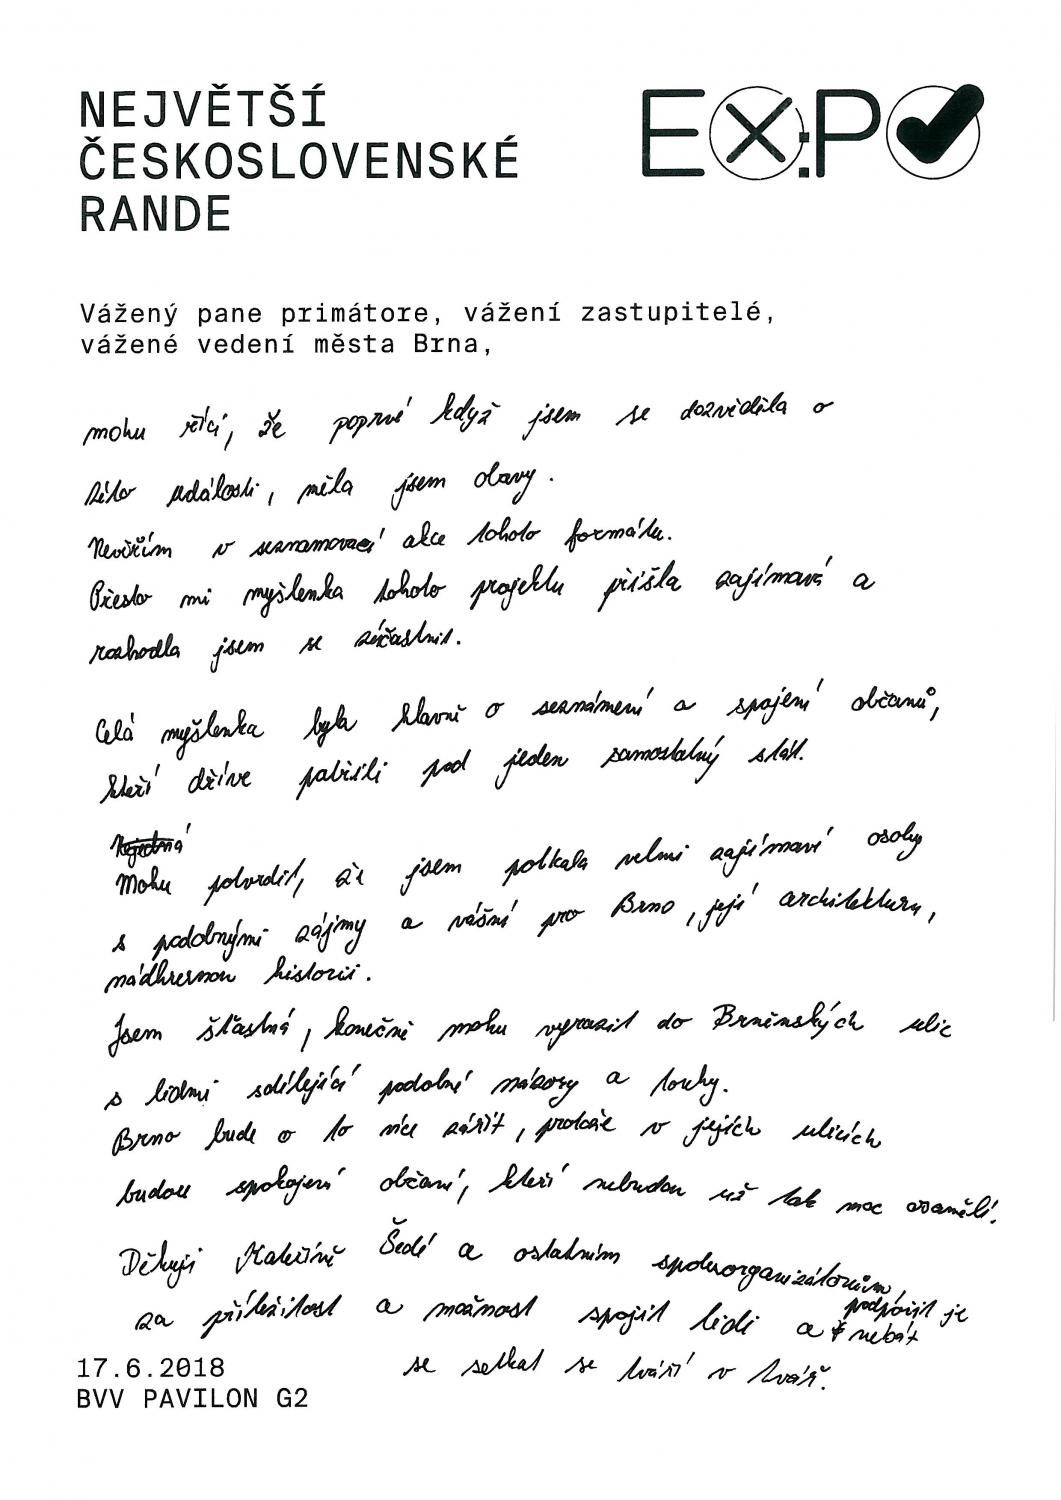 NEJVĚTŠÍ
ČESKOSLOVENSKÉ
RANDE
EX:PO
Vážený pane primátore, vážení zastupitelé,
vážené vedení města Brna,
mohu říci, že poprvé když jsem se dozvěděla o
této události, měla jsem obavy.
Nevěřím v seznamovací akce tohoto formátu.
Přesto mi myšlenka tohoto projektu přišla zajímavá a
rozhodla jsem se zúčastnit.
Celá myšlenka byla hlavně o seznámení a spojení občanů,
kteří dříve patřili pod jeden samostatný stát.
Nejedná
Mohu potvrdit, že jsem potkala velmi zajímavé osoby
s podobnými zájmy a vášní pro Brno, její architekturu,
nádhernou historii.
Jsem šťastná, konečně mohu vyrazit do Brněnských ulic
s lidmi sdílející podobné názory a touhy.
Brno bude o to více zářit, protože v jejích ulicích
budou spokojení občané, kteří nebudou už tak moc osamělí.
Děkuji Kateřině Šedé a ostatním spoluorganizátorům,
za příležitost a možnost spojit lidi a podpořit je
nebát
se setkat se tváří v tvář.
17.6.2018
BVV PAVILON G2